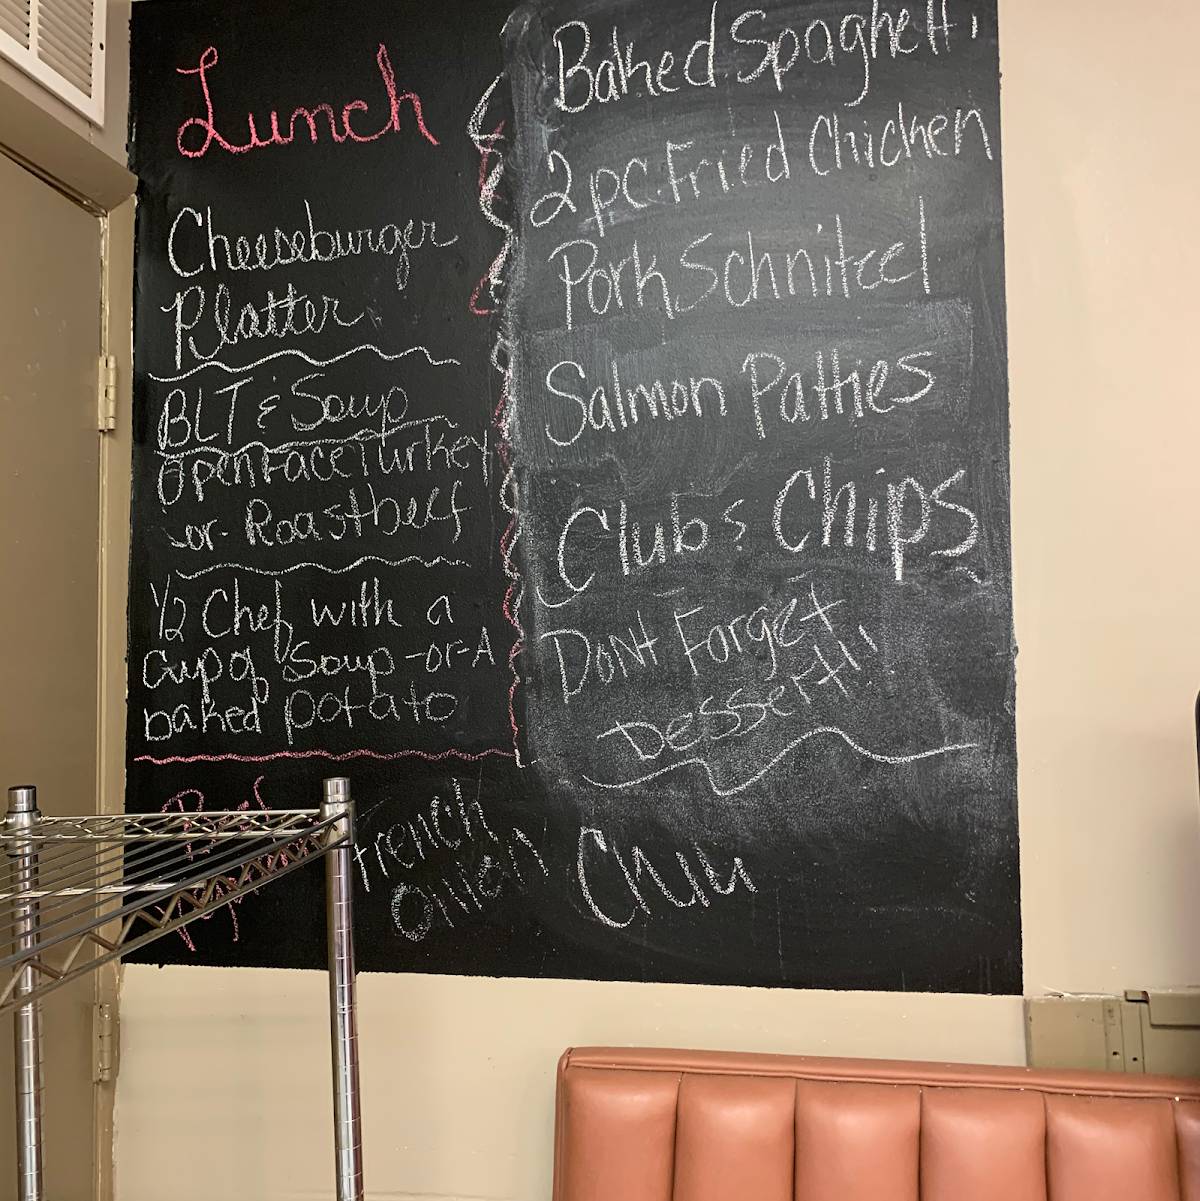 Lunch
Cheeseburger
Platter
BLT & Soup
Open Face Turkey
-or- Roastbeef
1/2 Chef with a
Cup of Soup -or- A
baked potato
Baked Spaghetti
2 pc. Fried Chicken
Pork Schnitzel
Salmon Patties
Club & Chips
Dont Forget
Dessert!!
French
Onion